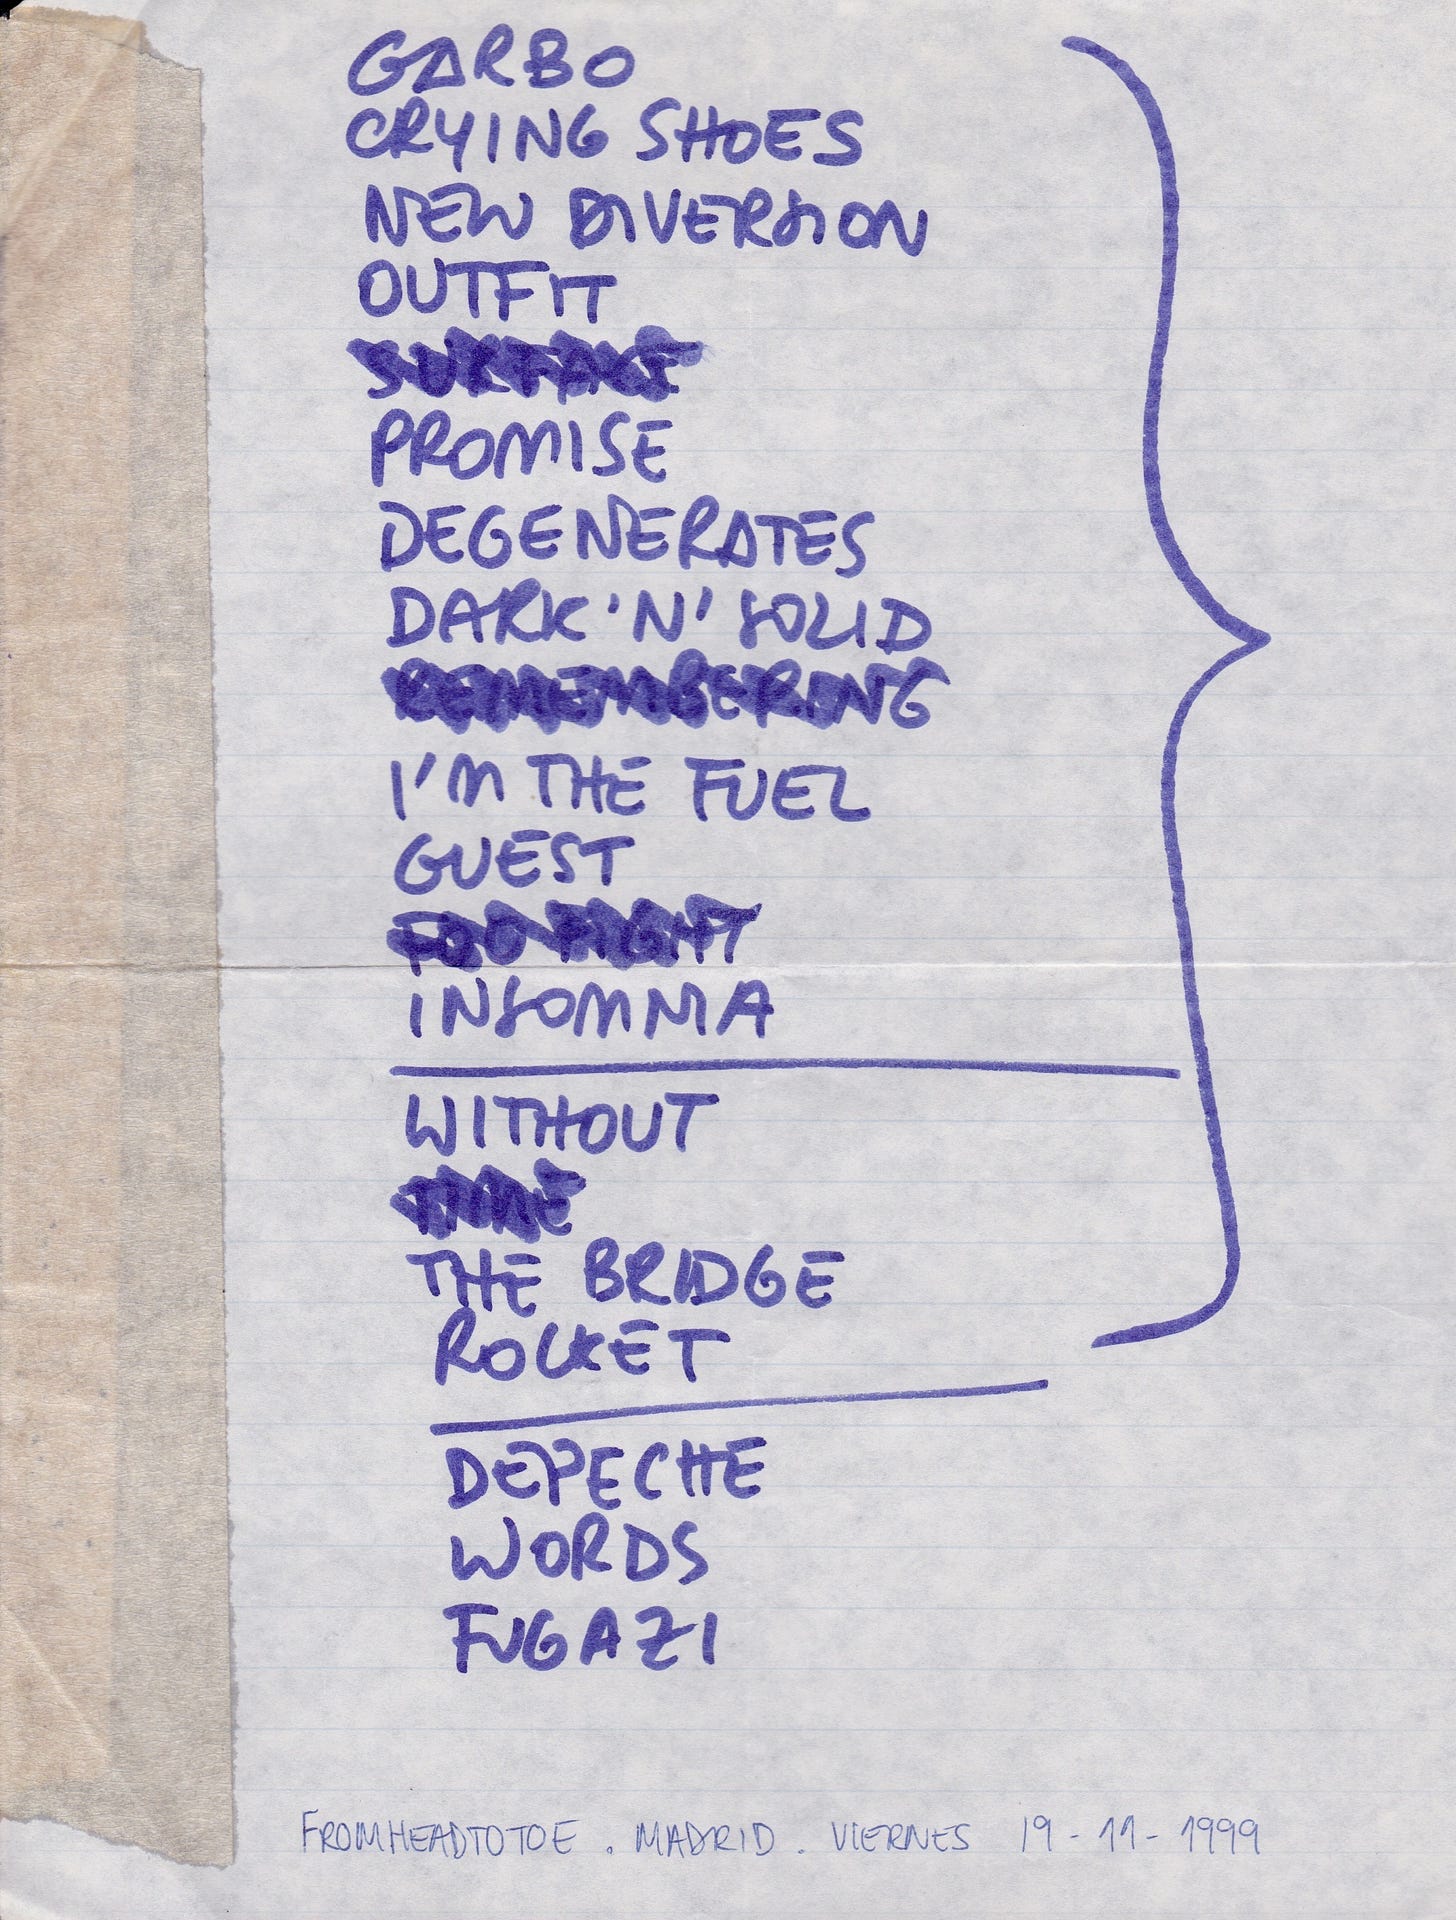 GARBO
CRYING SHOES
NEW DIVERSION
OUTFIT
SURFACE
PROMISE
DEGENERATES
DARK 'N' SOLID
REMEMBERING
I'M THE FUEL
GUEST
FOO FIGHT
INSOMNIA
WITHOUT
THE BRIDGE
ROCKET
DEPECHE
WORDS
FUGAZI
FROMHEADTOTOE . MADRID . VIERNES 19-11-1999